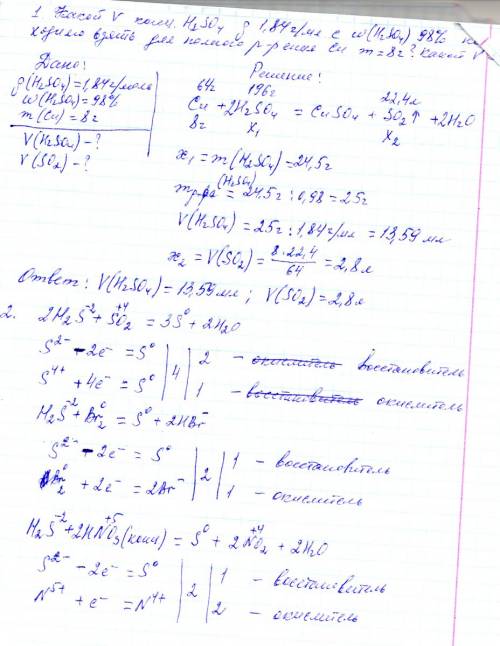 1. Какой V конц. H₂SO₄ ρ 1,84 г/мл с w(H₂SO₄) 98% не-
ходимо взять для полного р-рения Cu m=8г? Какой V
Дано:
ρ(H₂SO₄)=1,84 г/моль
w(H₂SO₄)=98%
m(Cu)=8г
V(H₂SO₄)-?
V(SO₂)-?
Решение:
64г 196г 22,4л
Cu + 2H₂SO₄ = CuSO₄ + SO₂↑ + 2H₂O
8г x₁ x₂
x₁ = m(H₂SO₄) = 24,5г
mр-ра (H₂SO₄) = 24,5г : 0,98 = 25г
V(H₂SO₄) = 25г : 1,84 г/мл = 13,59 мл
x₂ = V(SO₂) = 8·22,4/64 = 2,8 л
Ответ: V(H₂SO₄) = 13,59 мл; V(SO₂) = 2,8 л
2. 2H₂S⁻² + S⁺⁴O₂ = 3S⁰ + 2H₂O
S²⁻ - 2e⁻ = S⁰ | 4 | 2 - окислитель восстановитель
S⁴⁺ + 4e⁻ = S⁰ | | 1 - восстановитель окислитель
H₂S⁻² + Br₂⁰ = S⁰ + 2HBr⁻
S²⁻ - 2e⁻ = S⁰ | 2 | 1 - восстановитель
Br₂⁰ + 2e⁻ = 2Br⁻ | | 1 - окислитель
H₂S⁻² + 2HN⁺⁵O₃(конц) = S⁰ + 2N⁺⁴O₂ + 2H₂O
S²⁻ - 2e⁻ = S⁰ | 2 | 1 - восстановитель
N⁵⁺ + e⁻ = N⁴⁺ | | 2 - окислитель